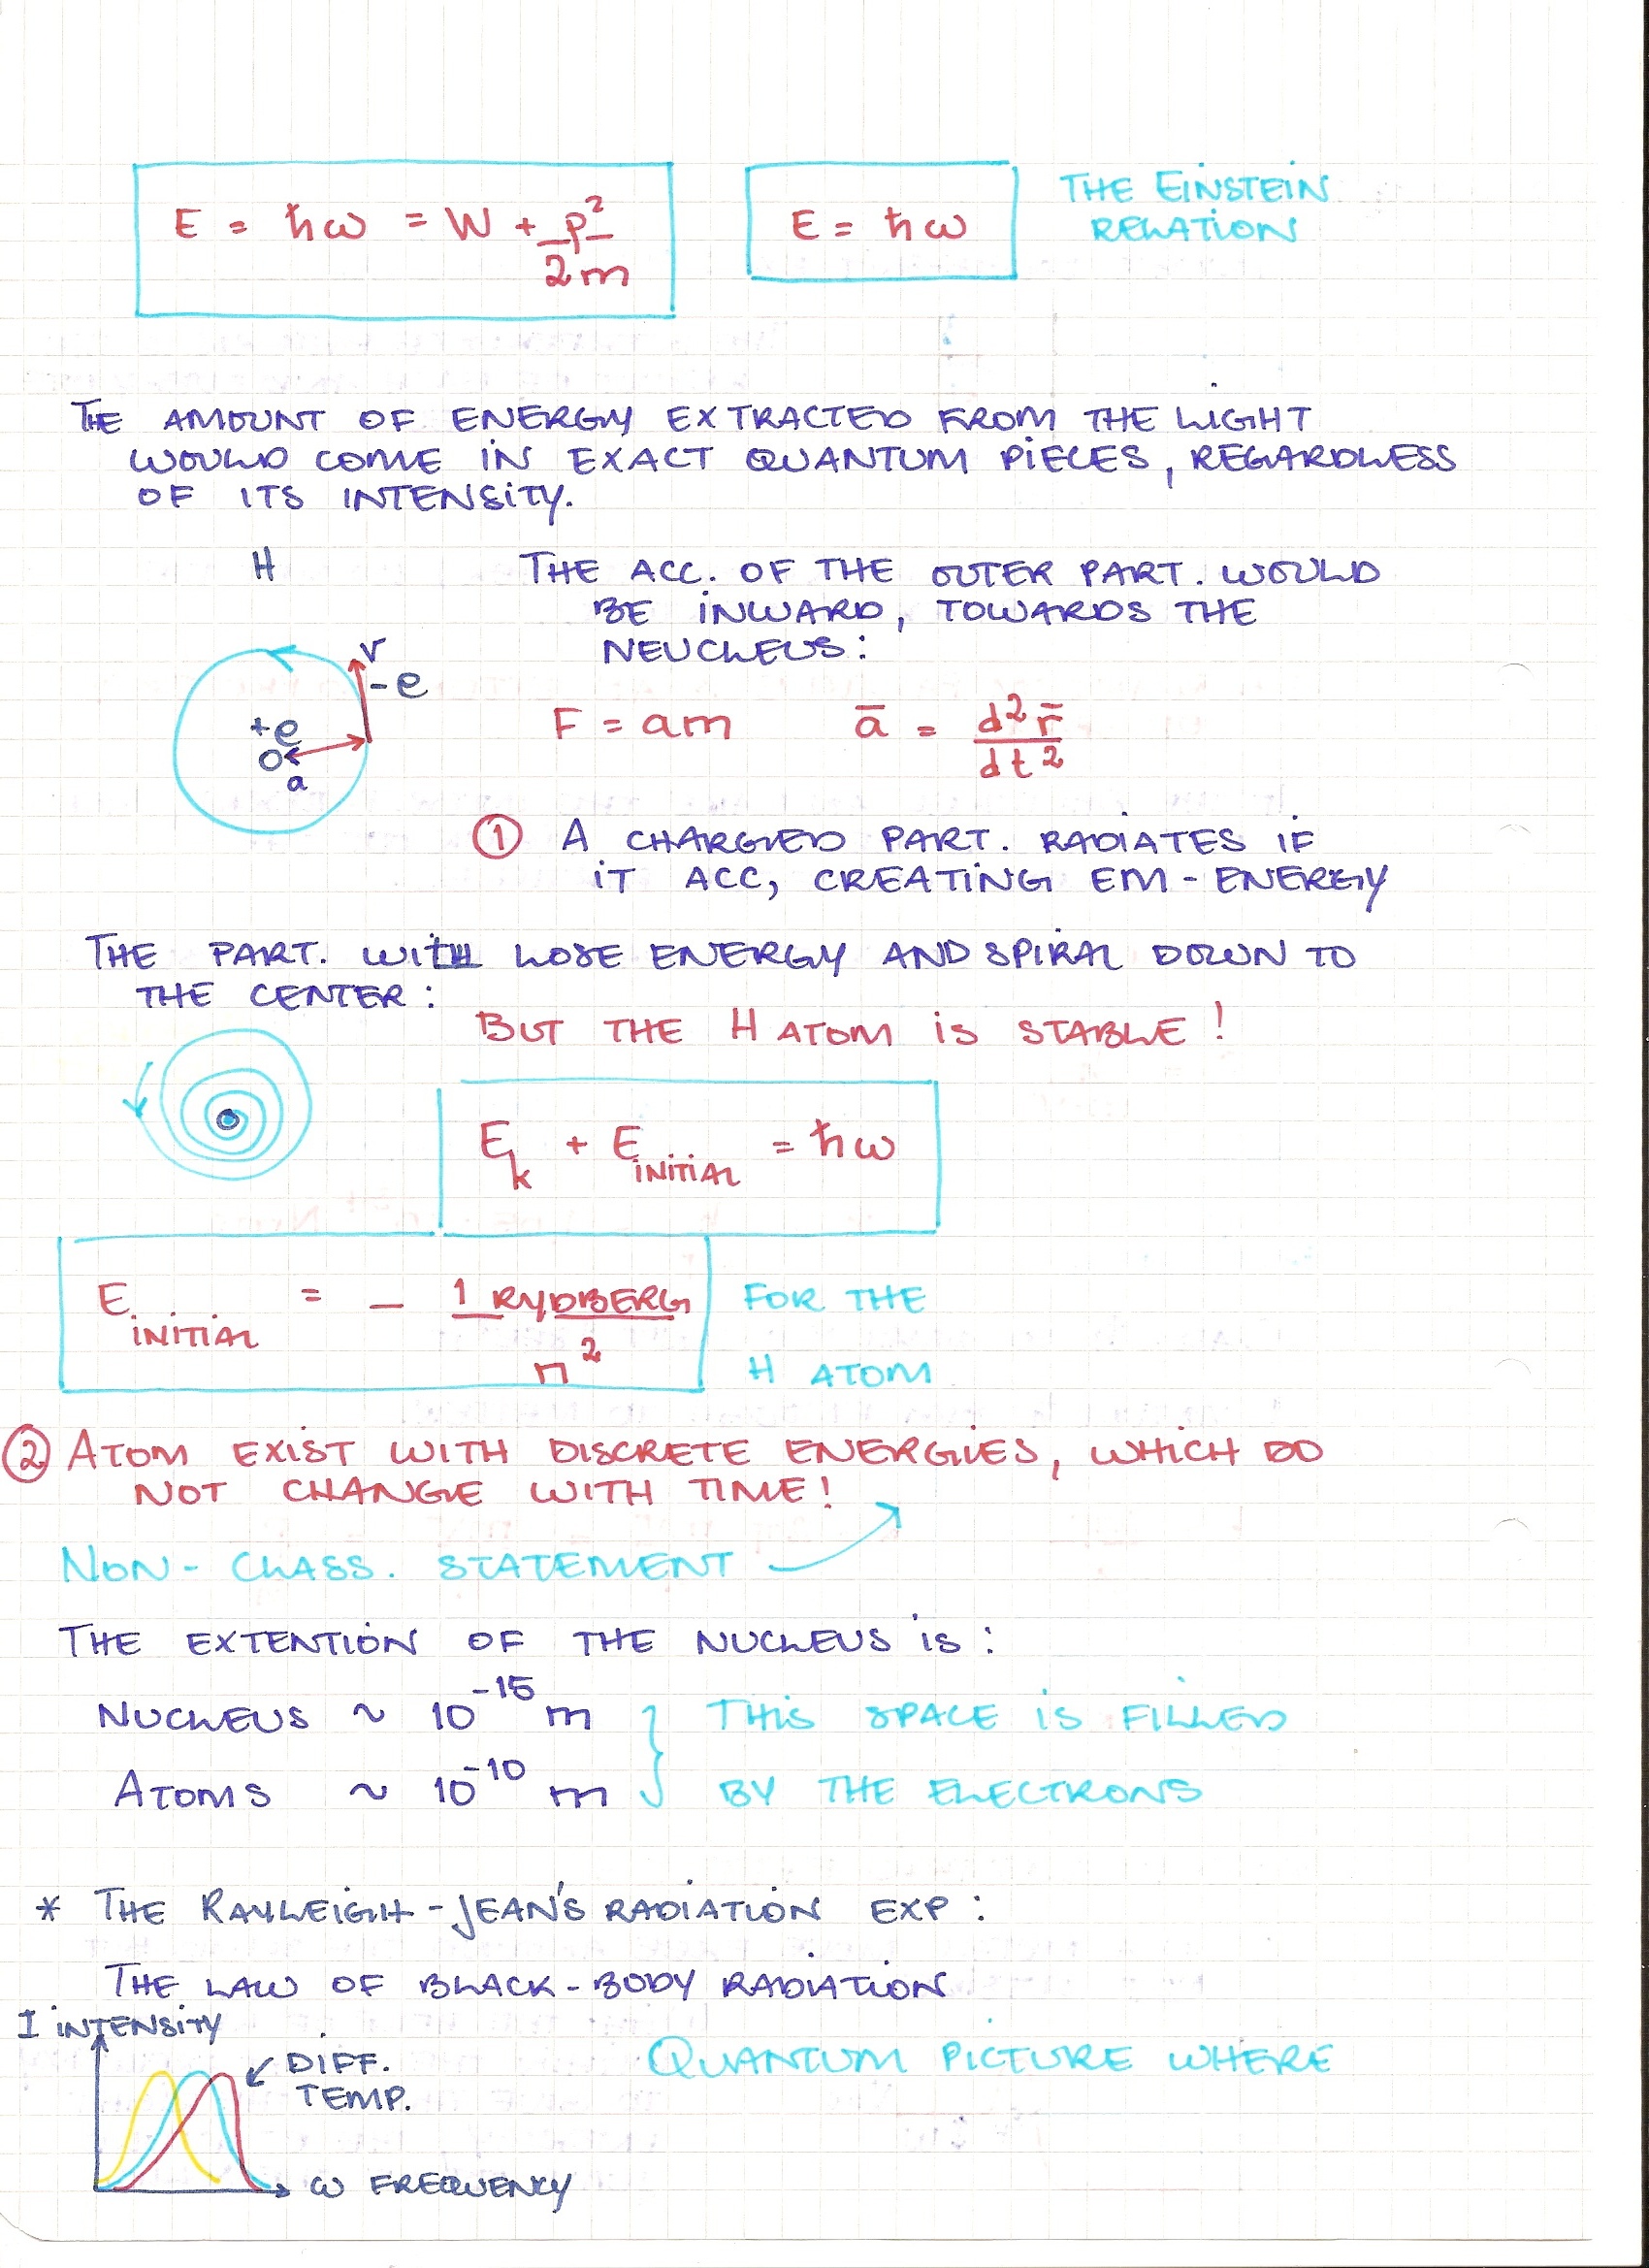 E = ħω = W + p²/2m
E = ħω
THE EINSTEIN
RELATION
THE AMOUNT OF ENERGY EXTRACTED FROM THE LIGHT
WOULD COME IN EXACT QUANTUM PIECES, REGARDLESS
OF ITS INTENSITY.
H
THE ACC. OF THE OUTER PART. WOULD
BE INWARD, TOWARDS THE
NEUCLEUS:
v
-e
+e
a
F = am
a̅ = d²r̅/dt²
① A CHARGED PART. RADIATES IF
IT ACC, CREATING EM-ENERGY
THE PART. WILL LOSE ENERGY AND SPIRAL DOWN TO
THE CENTER:
BUT THE H ATOM IS STABLE!
E_k + E_INITIAL = ħω
E_INITIAL = - 1 RYDBERG/n²
FOR THE
H ATOM
② ATOM EXIST WITH DISCRETE ENERGIES, WHICH DO
NOT CHANGE WITH TIME!
NON-CLASS. STATEMENT
THE EXTENTION OF THE NUCLEUS IS:
NUCLEUS ~ 10⁻¹⁵ m } THIS SPACE IS FILLED
ATOMS ~ 10⁻¹⁰ m } BY THE ELECTRONS
* THE RAYLEIGH-JEAN'S RADIATION EXP:
THE LAW OF BLACK-BODY RADIATION
I INTENSITY
DIFF.
TEMP.
QUANTUM PICTURE WHERE
ω FREQUENCY